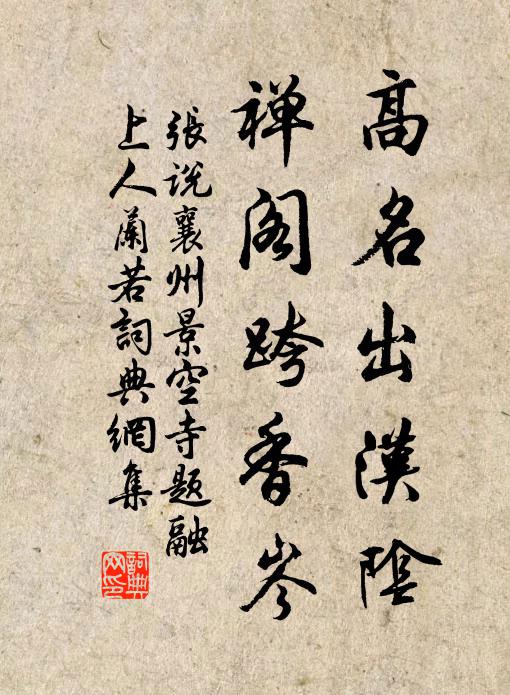 高名出漢陰
禅閣跨香岑
張説襄州景空寺題融
上人蘭若詞典網集
詞典網印